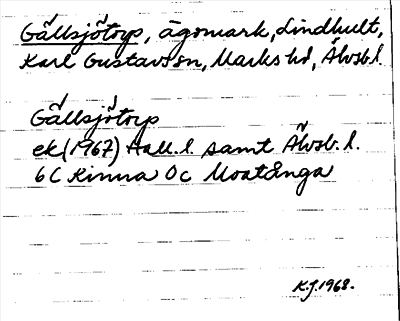 Gällsjötorp, ägomark, Lindhult,
Karl Gustavson, Marks hd, Älvsb.l.
Gällsjötorp
ek (1967) Hall.l. samt Älvsb. l.
6C Kinna 0c Moatånga
K.J. 1968.